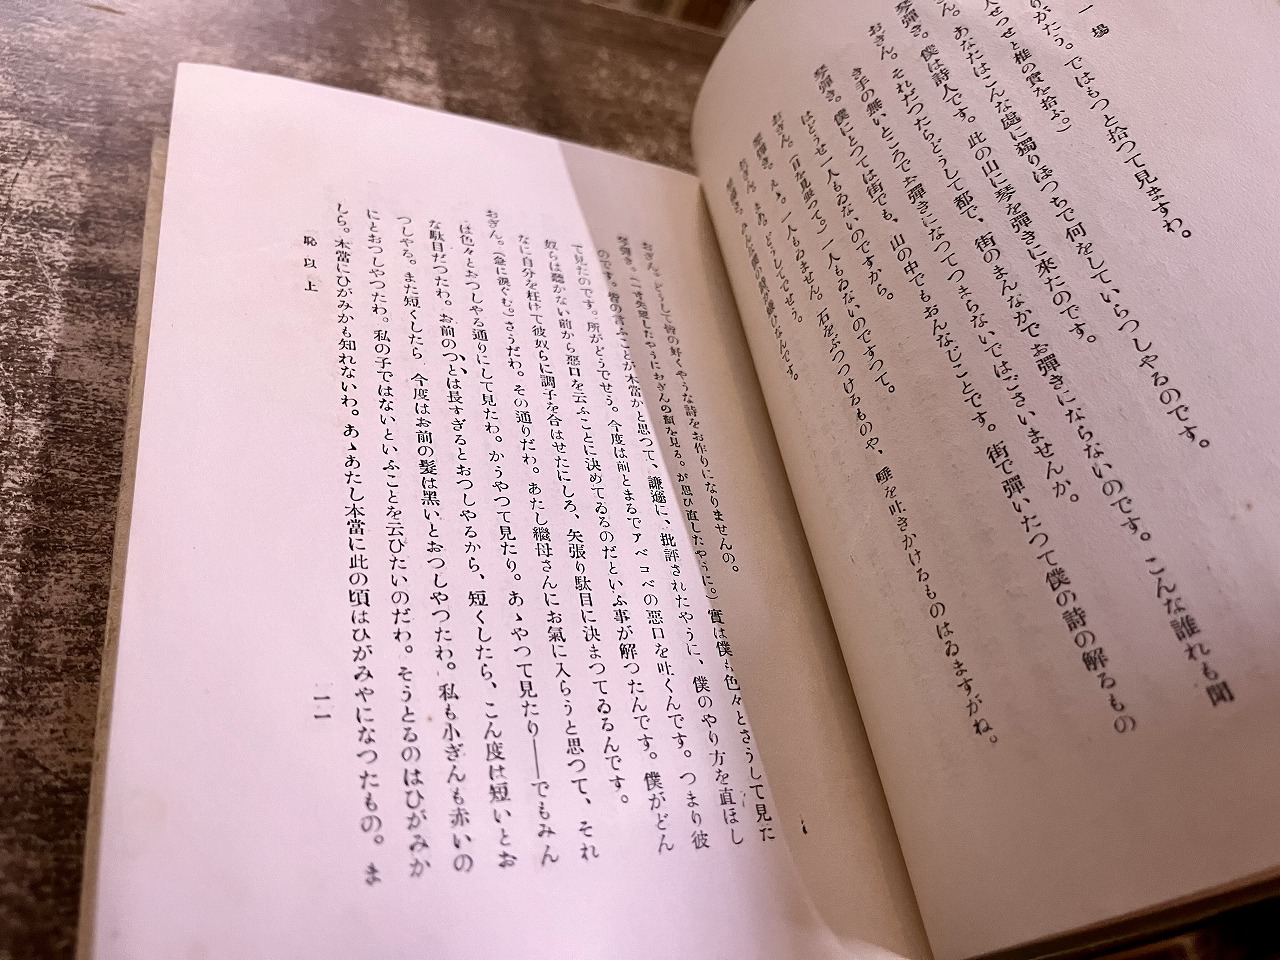 一場
りがたう。ではもつと拾つて見ますわ。
人せつせと椎の實を拾ふ。）
ん。あなたはこんな處に獨りぽつちで何をしていらつしやるのです。
琴彈き。僕は詩人です。此の山に琴を彈きに來たのです。
おぎん。それだつたらどうして都で、街のまんなかでお彈きにならないのです。こんな誰れも聞
き手の無いところでお彈きになつてつまらないではございませんか。
琴彈き。僕にとつては街でも、山の中でもおんなじことです。街で彈いたつて僕の詩の解るもの
はどうせ一人もゐないのですから。
おぎん。（目を見張つて。）一人もゐないのですつて。
琴彈き。えゝ。一人もゐません。石をぶつつけるものや、唾を吐きかけるものはゐますがね。
おぎん。まあ。どうしてでせう。
琴彈き。みんな僕の詩が嫌ひなんです。
おぎん。どうして皆の好くやうな詩をお作りになりませんの。
琴彈き。（一寸失望したやうにおぎんの顏を見る。が思ひ直したやうに。）實は僕も色々とさうして見た
のです。皆の言ふことが本當かと思つて、謙遜に、批評されたやうに、僕のやり方を直ほし
て見たのです。所がどうでせう。今度は前とまるでアベコベの惡口を吐くんです。つまり彼
奴らは聽かない前から惡口を云ふことに決めてゐるのだといふ事が解つたんです。僕がどん
なに自分を枉げて彼奴らに調子を合はせたにしろ、矢張り駄目に決まつてゐるんです。
おぎん。（急に涙ぐむ。）さうだわ。その通りだわ。あたし繼母さんにお氣に入らうと思つて、それ
は色々とおつしやる通りにして見たわ。かうやつて見たり。あゝやつて見たり──でもみん
な駄目だつたわ。お前のつゝとは長すぎるとおつしやるから、短くしたら、こん度は短いとお
つしやる。また短くしたら 今度はお前の髮は黑いとおつしやつたわ。私も小ぎんも赤いの
にとおつしやつたわ。私の子ではないといふことを云ひたいのだわ。そうとるのはひがみか
しら。本當にひがみかも知れないわ。あゝあたし本當に此の頃はひがみやになつたもの。ま
恥以上
一一